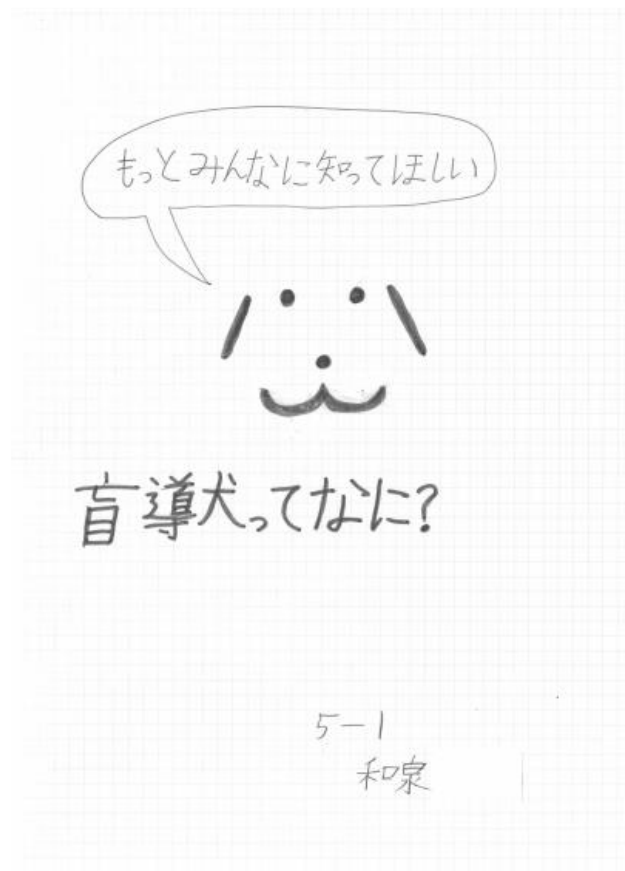 もっとみんなに知ってほしい
盲導犬ってなに?
5-1
和泉